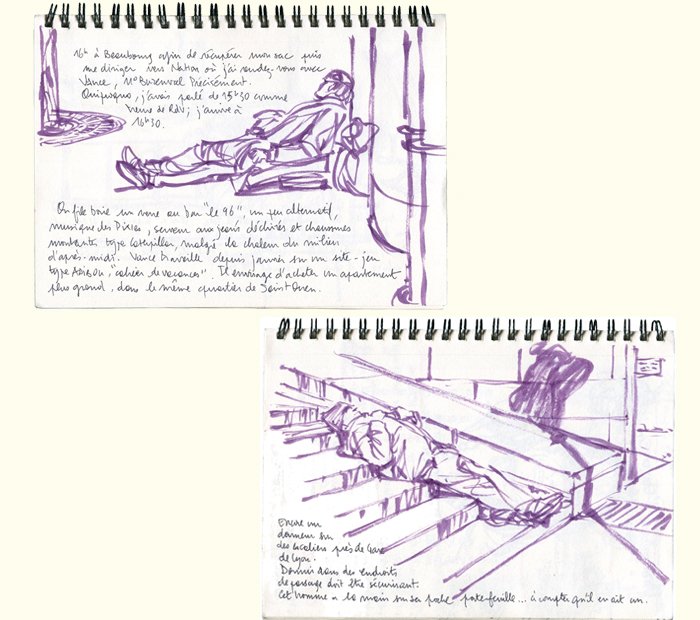 16h à Beaubourg afin de récupérer mon sac puis
me diriger vers Nation où j'ai rendez-vous avec
Vance, M° Buzenval précisément.
Quiproquo, j'avais parlé de 15h30 comme
heure de RdV; j'arrive à
16h30.
On file boire un verre au bar "le 96", un peu alternatif,
musique des Pixies, serveur aux jeans déchirés et chaussures
montantes type Caterpillar, malgré la chaleur du milieu
d'après-midi. Vance travaille depuis janvier sur un site-jeu
type "cahier de vacances". Il envisage d'acheter un appartement
plus grand, dans le même quartier de Saint Ouen.
Encore un
dormeur sur
des escaliers près de Gare
de Lyon.
Dormir dans des endroits
de passage doit être sécurisant.
Cet homme a la main sur sa poche portefeuille... à compter qu'il en ait un.